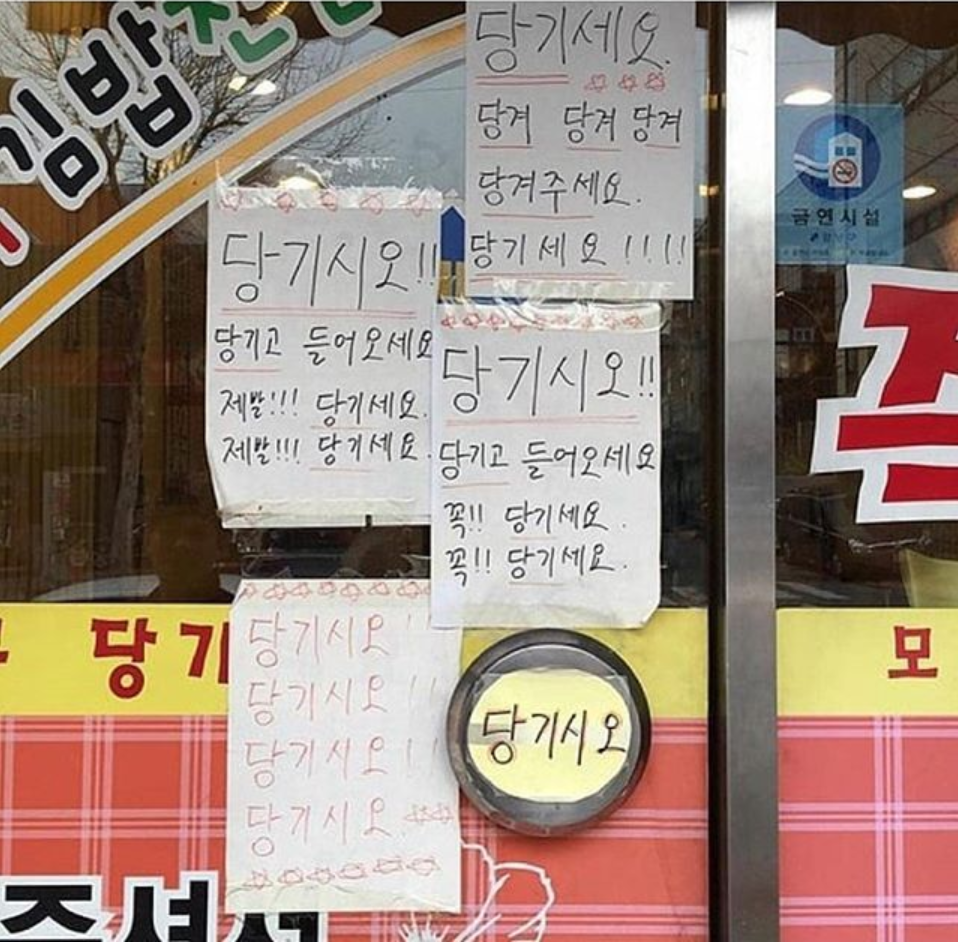 김밥천
당기세요.
당겨 당겨 당겨
당겨주세요.
당기세요!!!!
금연시설
당기시오!!
당기고 들어오세요
제발!!! 당기세요.
제발!!! 당기세요.
당기시오!!
당기고 들어오세요
꼭!! 당기세요.
꼭!! 당기세요.
당기
모
당기시오!!
당기시오!!
당기시오!!
당기시오
당기시오
주셔서